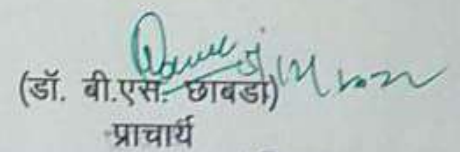 (डॉ. बी.एस. छाबडा)
प्राचार्य